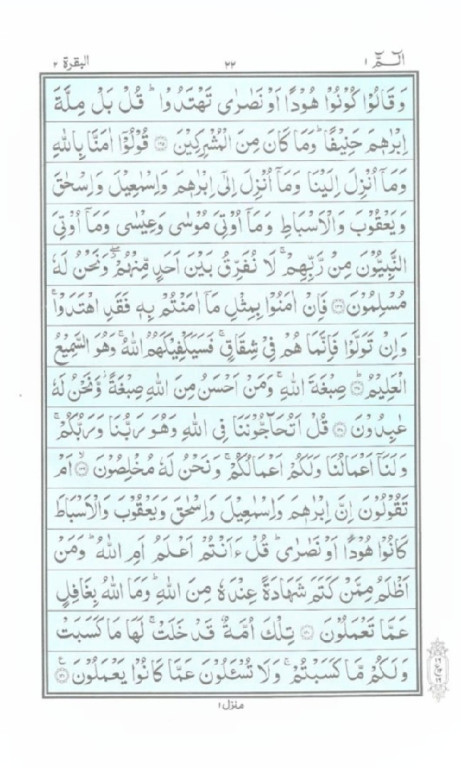 الٓمّٓ ١ ٢٢ البقرة ٢
وَقَالُوْا كُوْنُوْا هُوْدًا اَوْ نَصٰرٰى تَهْتَدُوْا ؕ قُلْ بَلْ مِلَّةَ
اِبْرٰهٖمَ حَنِيْفًا ؕ وَمَا كَانَ مِنَ الْمُشْرِكِيْنَ ۝ قُوْلُوْۤا اٰمَنَّا بِاللّٰهِ
وَمَاۤ اُنْزِلَ اِلَيْنَا وَمَاۤ اُنْزِلَ اِلٰٓى اِبْرٰهٖمَ وَاِسْمٰعِيْلَ وَاِسْحٰقَ
وَيَعْقُوْبَ وَالْاَسْبَاطِ وَمَاۤ اُوْتِيَ مُوْسٰى وَعِيْسٰى وَمَاۤ اُوْتِيَ
النَّبِيُّوْنَ مِنْ رَّبِّهِمْ ۚ لَا نُفَرِّقُ بَيْنَ اَحَدٍ مِّنْهُمْ ۖ وَنَحْنُ لَهٗ
مُسْلِمُوْنَ ۝ فَاِنْ اٰمَنُوْا بِمِثْلِ مَاۤ اٰمَنْتُمْ بِهٖ فَقَدِ اهْتَدَوْا ۚ
وَاِنْ تَوَلَّوْا فَاِنَّمَا هُمْ فِيْ شِقَاقٍ ۚ فَسَيَكْفِيْكَهُمُ اللّٰهُ ۚ وَهُوَ السَّمِيْعُ
الْعَلِيْمُ ۝ صِبْغَةَ اللّٰهِ ۚ وَمَنْ اَحْسَنُ مِنَ اللّٰهِ صِبْغَةً ؗ وَّنَحْنُ لَهٗ
عٰبِدُوْنَ ۝ قُلْ اَتُحَآجُّوْنَنَا فِي اللّٰهِ وَهُوَ رَبُّنَا وَرَبُّكُمْ ۚ
وَلَنَاۤ اَعْمَالُنَا وَلَكُمْ اَعْمَالُكُمْ ۚ وَنَحْنُ لَهٗ مُخْلِصُوْنَ ۝ اَمْ
تَقُوْلُوْنَ اِنَّ اِبْرٰهٖمَ وَاِسْمٰعِيْلَ وَاِسْحٰقَ وَيَعْقُوْبَ وَالْاَسْبَاطَ
كَانُوْا هُوْدًا اَوْ نَصٰرٰى ؕ قُلْ ءَاَنْتُمْ اَعْلَمُ اَمِ اللّٰهُ ؕ وَمَنْ
اَظْلَمُ مِمَّنْ كَتَمَ شَهَادَةً عِنْدَهٗ مِنَ اللّٰهِ ؕ وَمَا اللّٰهُ بِغَافِلٍ
عَمَّا تَعْمَلُوْنَ ۝ تِلْكَ اُمَّةٌ قَدْ خَلَتْ ۚ لَهَا مَا كَسَبَتْ
وَلَكُمْ مَّا كَسَبْتُمْ ۚ وَلَا تُسْـَٔلُوْنَ عَمَّا كَانُوْا يَعْمَلُوْنَ ۝
منزل ١